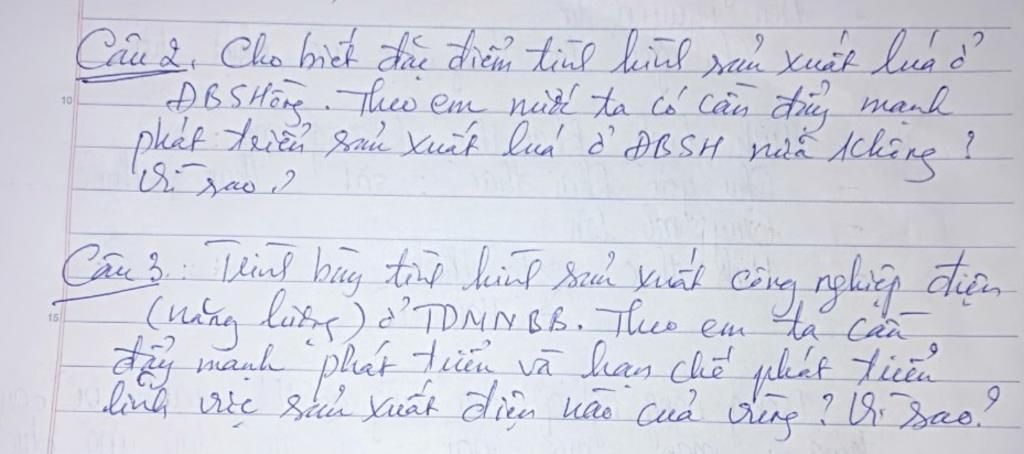 Câu 2. Cho biết đặc điểm tình hình sản xuất lúa ở
10 ĐBSHồng. Theo em nước ta có cần đẩy mạnh
phát triển sản xuất lúa ở ĐBSH nữa không?
Vì sao?
Câu 3. Trình bày tình hình sản xuất công nghiệp điện
15 (năng lượng) ở TDMNBB. Theo em ta cần
đẩy mạnh phát triển và hạn chế phát triển
lĩnh vực sản xuất điện nào của vùng? Vì sao?